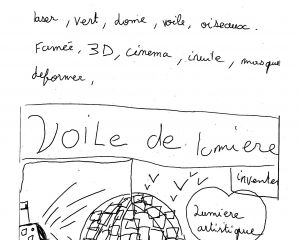 laser, vert, dome, voile, oiseaux.
Fumée, 3D, cinema, insulte, masque
deformée,
Voile de lumière
inventer
Lumière
artistique